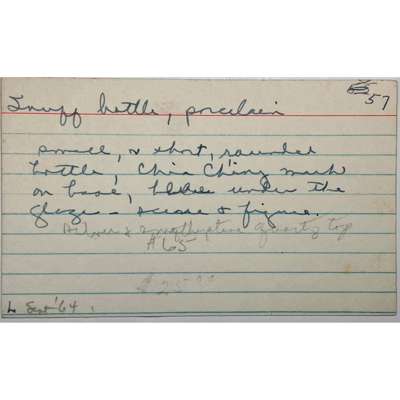 57
Snuff bottle, porcelain
small, & short, rounded
bottle, Chia Ch'ing mark
on base, blue under the
glaze - scene & figure.
Silver & amethystine quartz top
$65
$25.00
L Sept '64